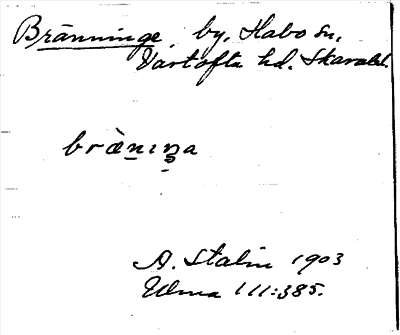 Bränninge, by, Habo sn,
Vartofta hd. Skarabl.
bràn̲ɪŋa
A. Stalin 1903
Ulma 111:385.